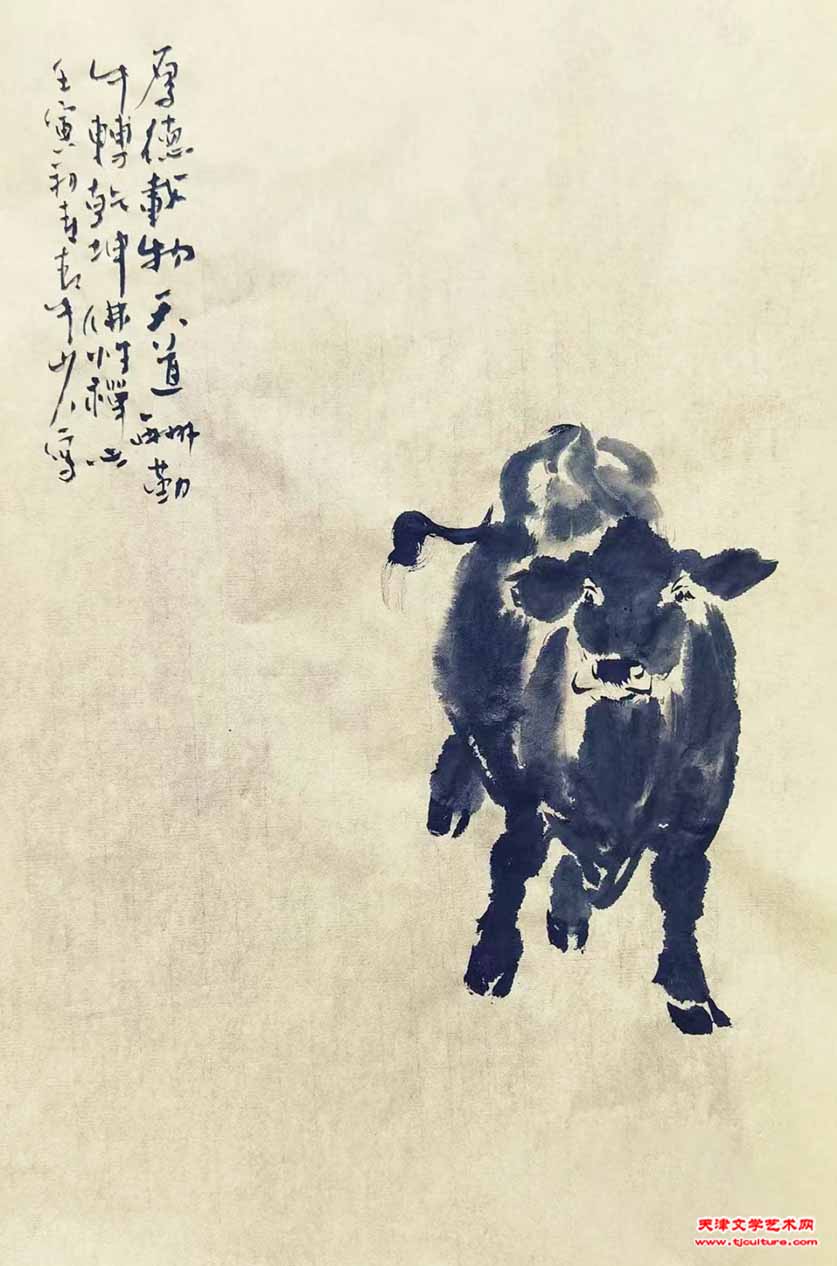 厚德載物天道酬勤
牛轉乾坤佛性禪心
壬寅初春青牛山人寫
天津文学艺术网
www.tjculture.com